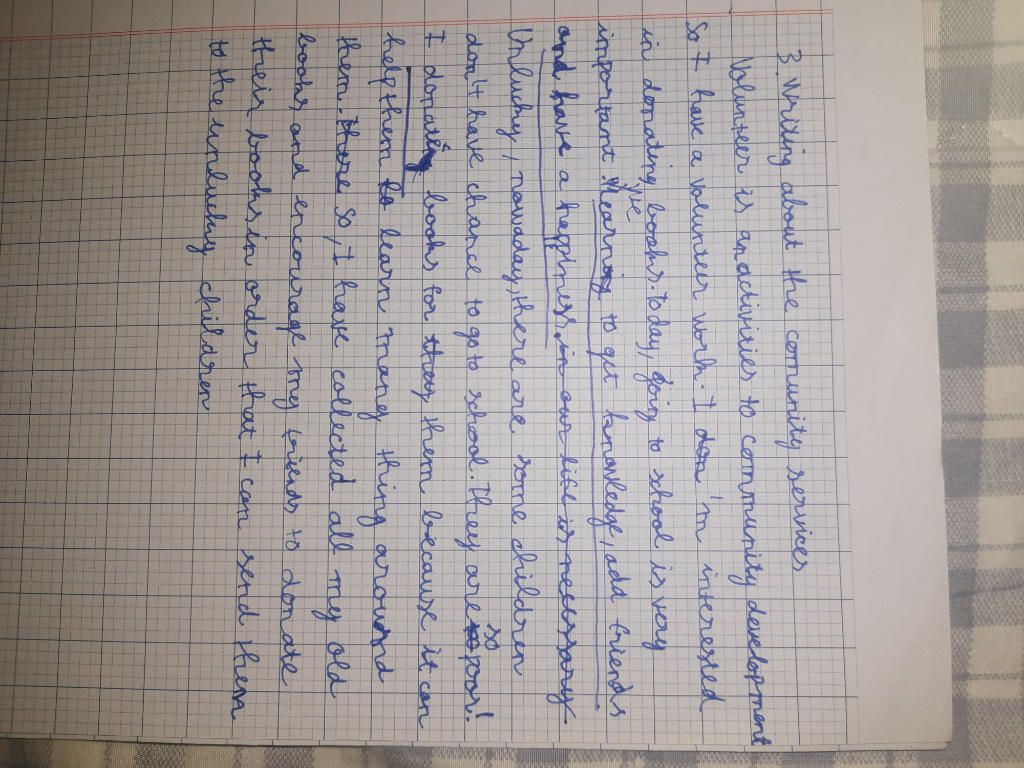 3. Writing about the comunity services
Volunteer is an activities to community development
So I have a volunteer work. I 'm interested
in donating books. today, going to shool is very
important. We learn to get knowledge, add friends
and have a happiness, in our life is necessary
Unlucky, nowaday, there are some children
don't have chance to go to school. They are so poor!
I donate books for them because it can
help them learn many thing around
them. those So, I have collected all my old
books, and encourage my friends to donate
their books in order that I can send them
to the unlucky children